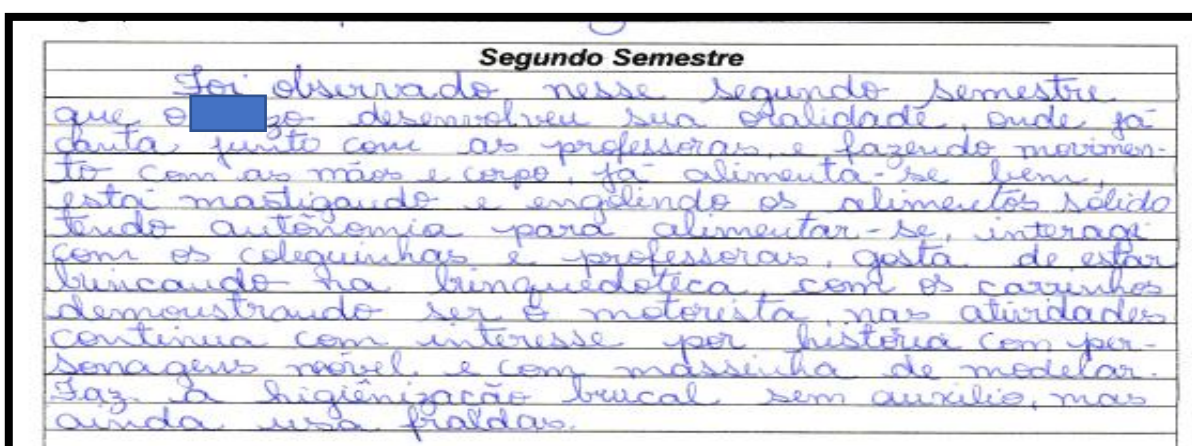 Segundo Semestre
Foi observado nesse segundo semestre
que o zo desenvolveu sua oralidade, onde já
canta junto com as professoras, e fazendo movimen-
to com as mãos e corpo, já alimenta-se bem,
está mastigando e engolindo os alimentos sólido
tendo autônomia para alimentar-se, interagi
com os coleguinhas e professoras, gosta de estar
brincando na brinquedoteca, com os carrinhos
demonstrando ser o motorista, nas atividades
continua com interesse por história com per-
sonagens móvel e com massinha de modelar.
Faz a higiênização brucal sem auxilio, mas
ainda usa fraldas.